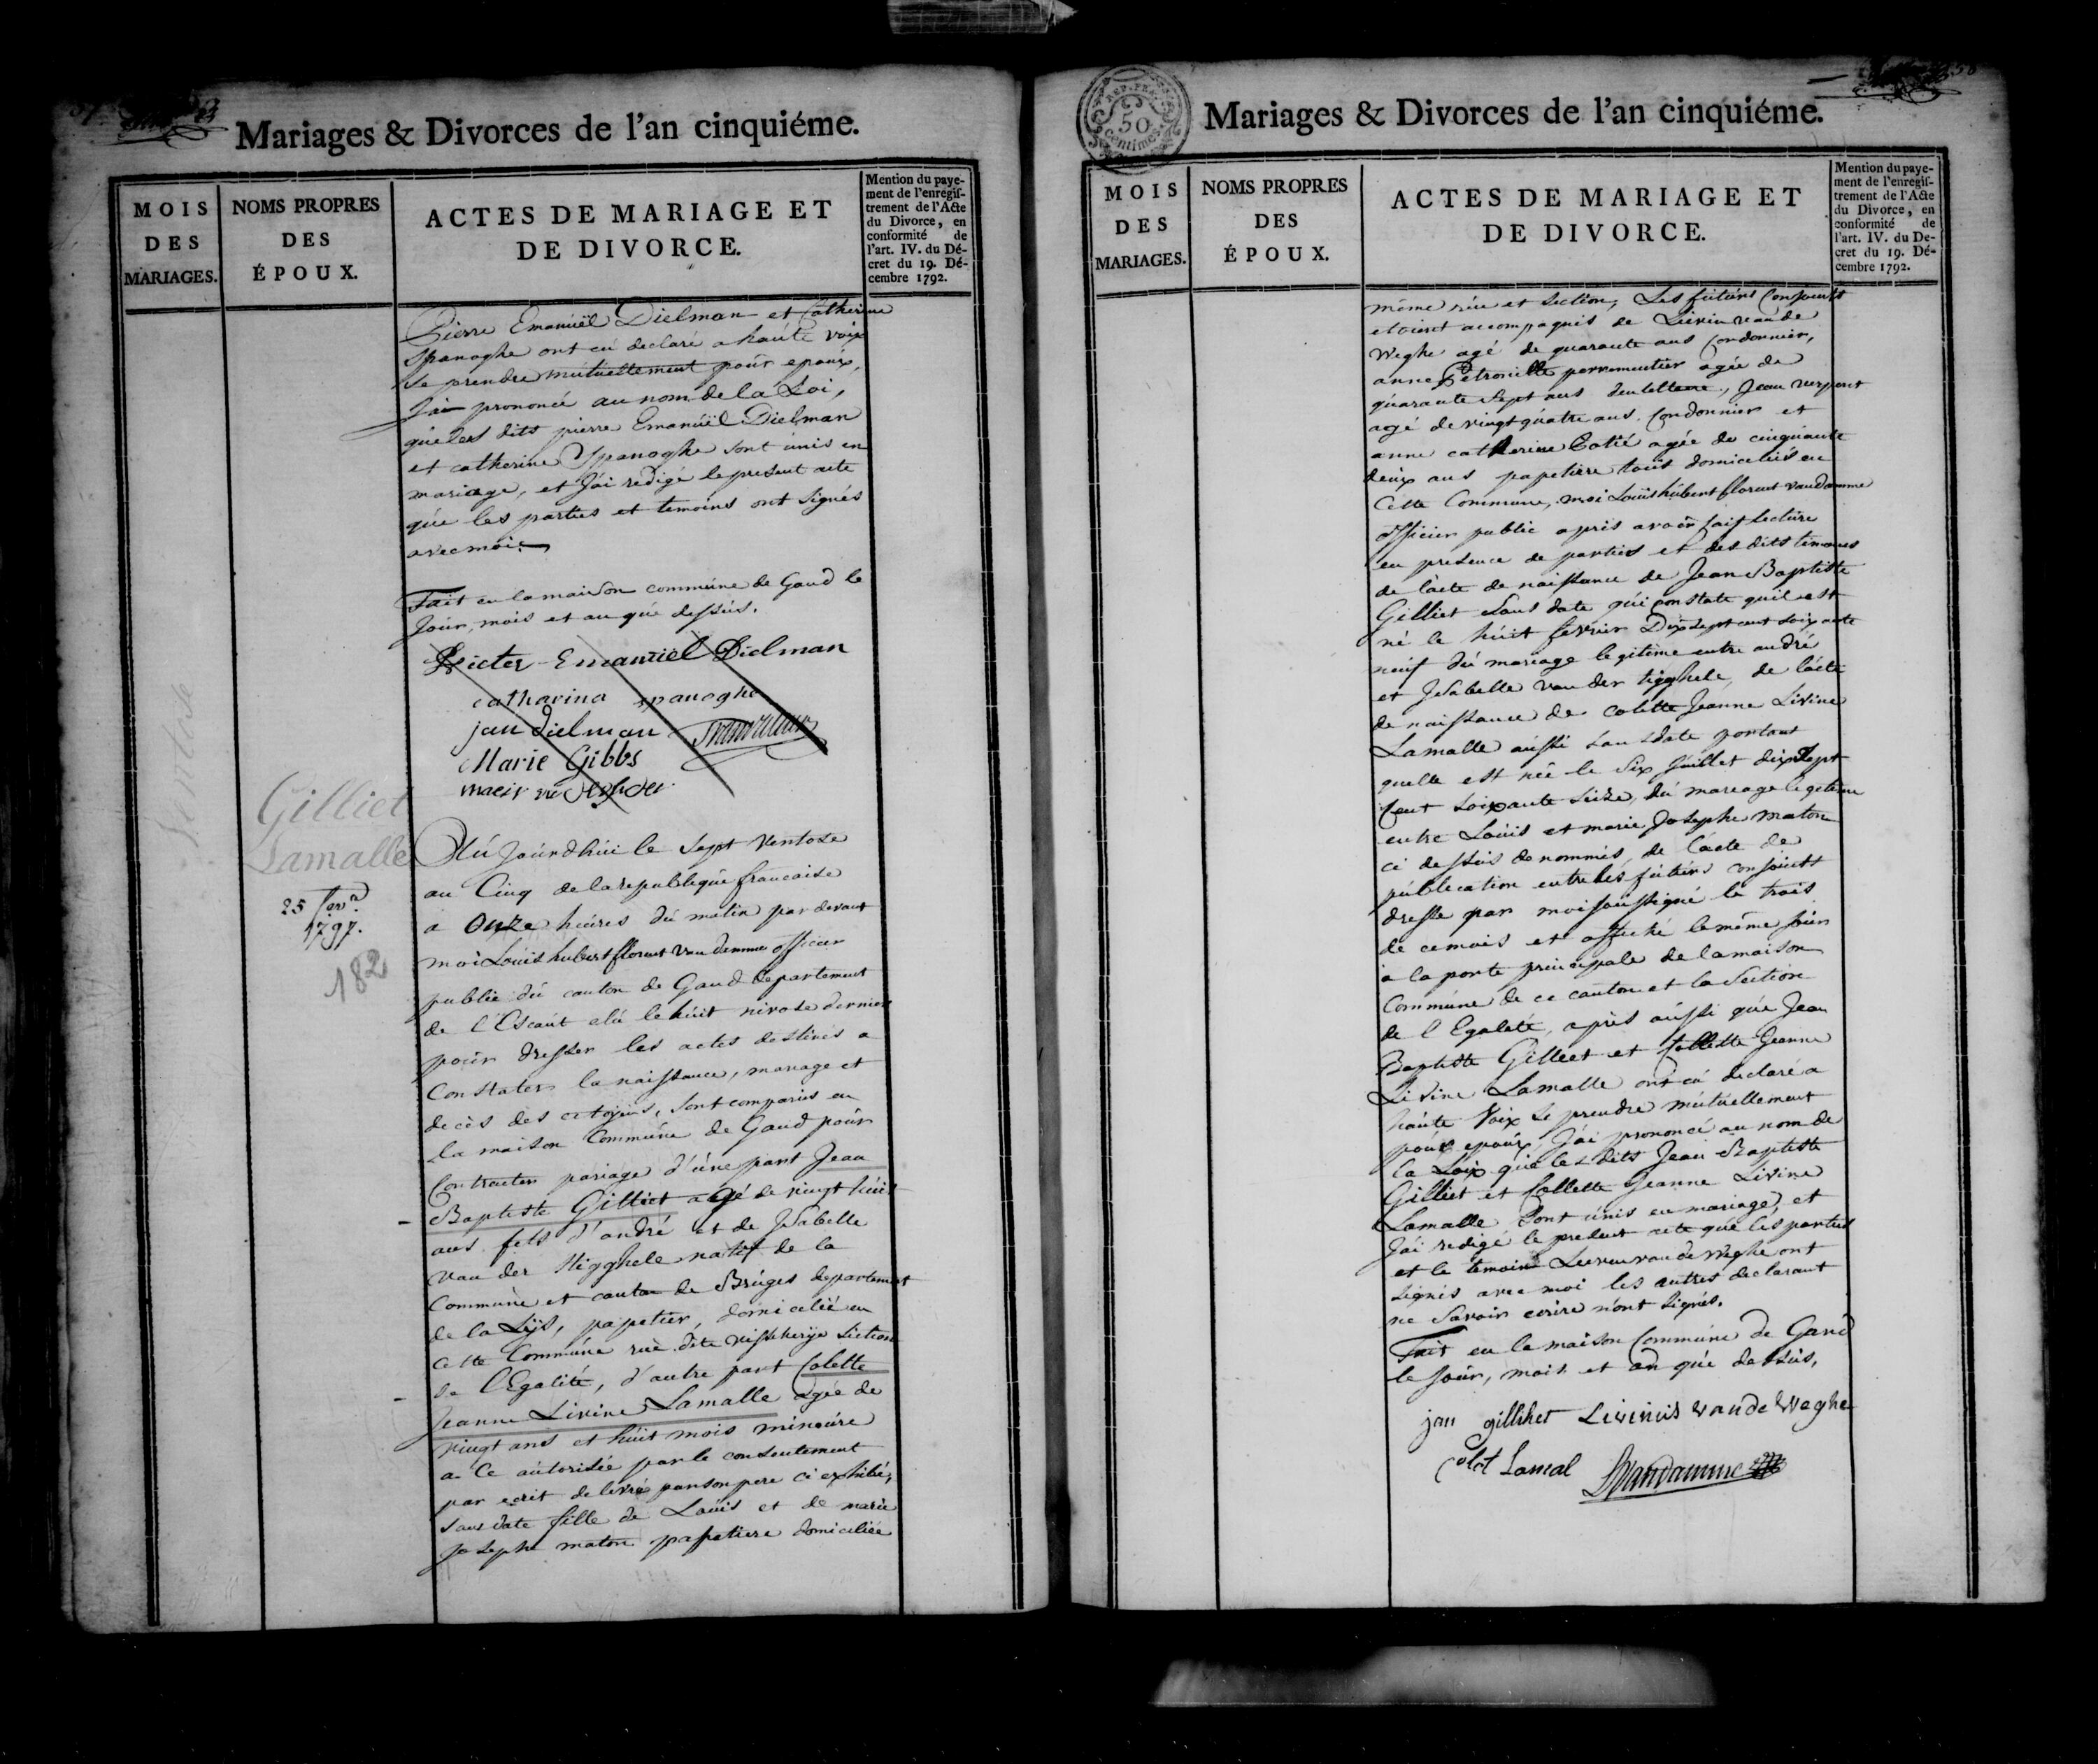 Mariages & Divorces de l'an cinquiéme.
MOIS
DES
MARIAGES.
NOMS PROPRES
DES
ÉPOUX.
ACTES DE MARIAGE ET
DE DIVORCE.
Mention du paye-
ment de l'enregis-
trement de l'Acte
du Divorce, en
conformité de
l'art. IV. du Dé-
cret du 19. Dé-
cembre 1792.
Pierre Emanüel Dielman et Catherine
Spanoghe ont eú declaré a haúte voix
se prendre mútúellement poúr epoúx,
J'ai prononcé au nom de la Loi,
qúe les dits pierre Emanúel Dielman
et catherine Spanoghe sont únis en
mariage, et J'ai redigé le present acte
qúe les parties et temoins ont signés
avec moi.
Fait en la maison commúne de Gand le
Joúr, mois et an qúe dessús.
Pieter Emanúel Dielman
catharina spanoghe
jan dielman
Marie Gibbs
Ventose
Gilliet
Lamalle
25
1797.
182
Aújoúrdhúi le Sept Ventose
an Cinq de la republiqúe francaise
à Onze heúres dú matin par devant
moi Loúis hubert florent van damme officier
public dú canton de Gand departement
de l'Escaút elú le húit nivose dernier
poúr dresser les actes destinés a
Constater la naissance, mariage et
decès des citoyens, sont comparús en
la maison Commúne de Gand poúr
Contracter mariage d'úne part Jean
Baptiste Gilliet agé de vingt húit
ans fils d'andré et de Jsabelle
van der Stigghele natif de la
Commúne et canton de Brúges departement
de la Lÿs, papetier, domicilié en
cette Commúne rúe dite visscherije Section
de l'Egalité, d'autre part Colette
Jeanne Livine Lamalle agée de
vingt ans et húit mois mineúre
a Ce aútorisée par le consentement
par ecrit delivré par son pere ci exhibé,
sans date fille de Loúis et de marie
Josephe maton papetiere domiciliée
Mariages & Divorces de l'an cinquiéme.
REP. FRA.
50
Centimes.
MOIS
DES
MARIAGES.
NOMS PROPRES
DES
ÉPOUX.
ACTES DE MARIAGE ET
DE DIVORCE.
Mention du paye-
ment de l'enregis-
trement de l'Acte
du Divorce, en
conformité de
l'art. IV. du De-
cret du 19. Dé-
cembre 1792.
même rúe et Section, Les fútúrs Conjoints
etoient accompagnés de Lievin vande
Weghe agé de quarante ans Cordonnier,
anne Petronille agée de
qúarante Sept ans dentelliere, Jean
agé de vingt qúatre ans Cordonnier et
anne catherine agée de cinqúante
deúx ans papetière toús domiciliés en
Cette Commúne, moi Loúis húbert florent vandamme
officier public après avoir fait lectúre
en presence de parties et des dits temoins
de l'acte de naissance de Jean Baptiste
Gilliet sans date qúi constate qú'il est
né le húit fevrier Dix sept cent soixante
neuf dú mariage legitime entre andré
et Jsabelle van der Stigghele, de l'acte
de naissance de Colette Jeanne Livine
Lamalle aússi sans date portant
qúelle est née le Six Júillet dix Sept
Cent soixante Seize, dú mariage legitime
entre Loúis et marie Josephe maton
ci dessús denommés, de l'acte de
públication entre les fútúrs conjoints
dressé par moi soússigné le trois
de ce mois et affiché le même joúr
à la porte principale de la maison
Commúne de ce canton et la Section
de l'Egalité, après aússi qúe Jean
Baptiste Gilliet et Collette Jeanne
Livine Lamalle ont eú declaré a
haúte Voix se prendre mútúellement
poúr epoúx, J'ai prononcé au nom de
la Loix qúe les dits Jean Baptiste
Gilliet et Collette Jeanne Livine
Lamalle Sont únis en mariage, et
J'ai redigé le present acte qúe les parties
et le temoin Lievin van de Weghe ont
signés avec moi les autres declarant
ne Savoir ecrire n'ont signés.
Fait en la maison Commúne de Gand
le Joúr, mois et an qúe dessús,
jan gillihet Livinus van de Weghe
Colet Lamal LVandamme